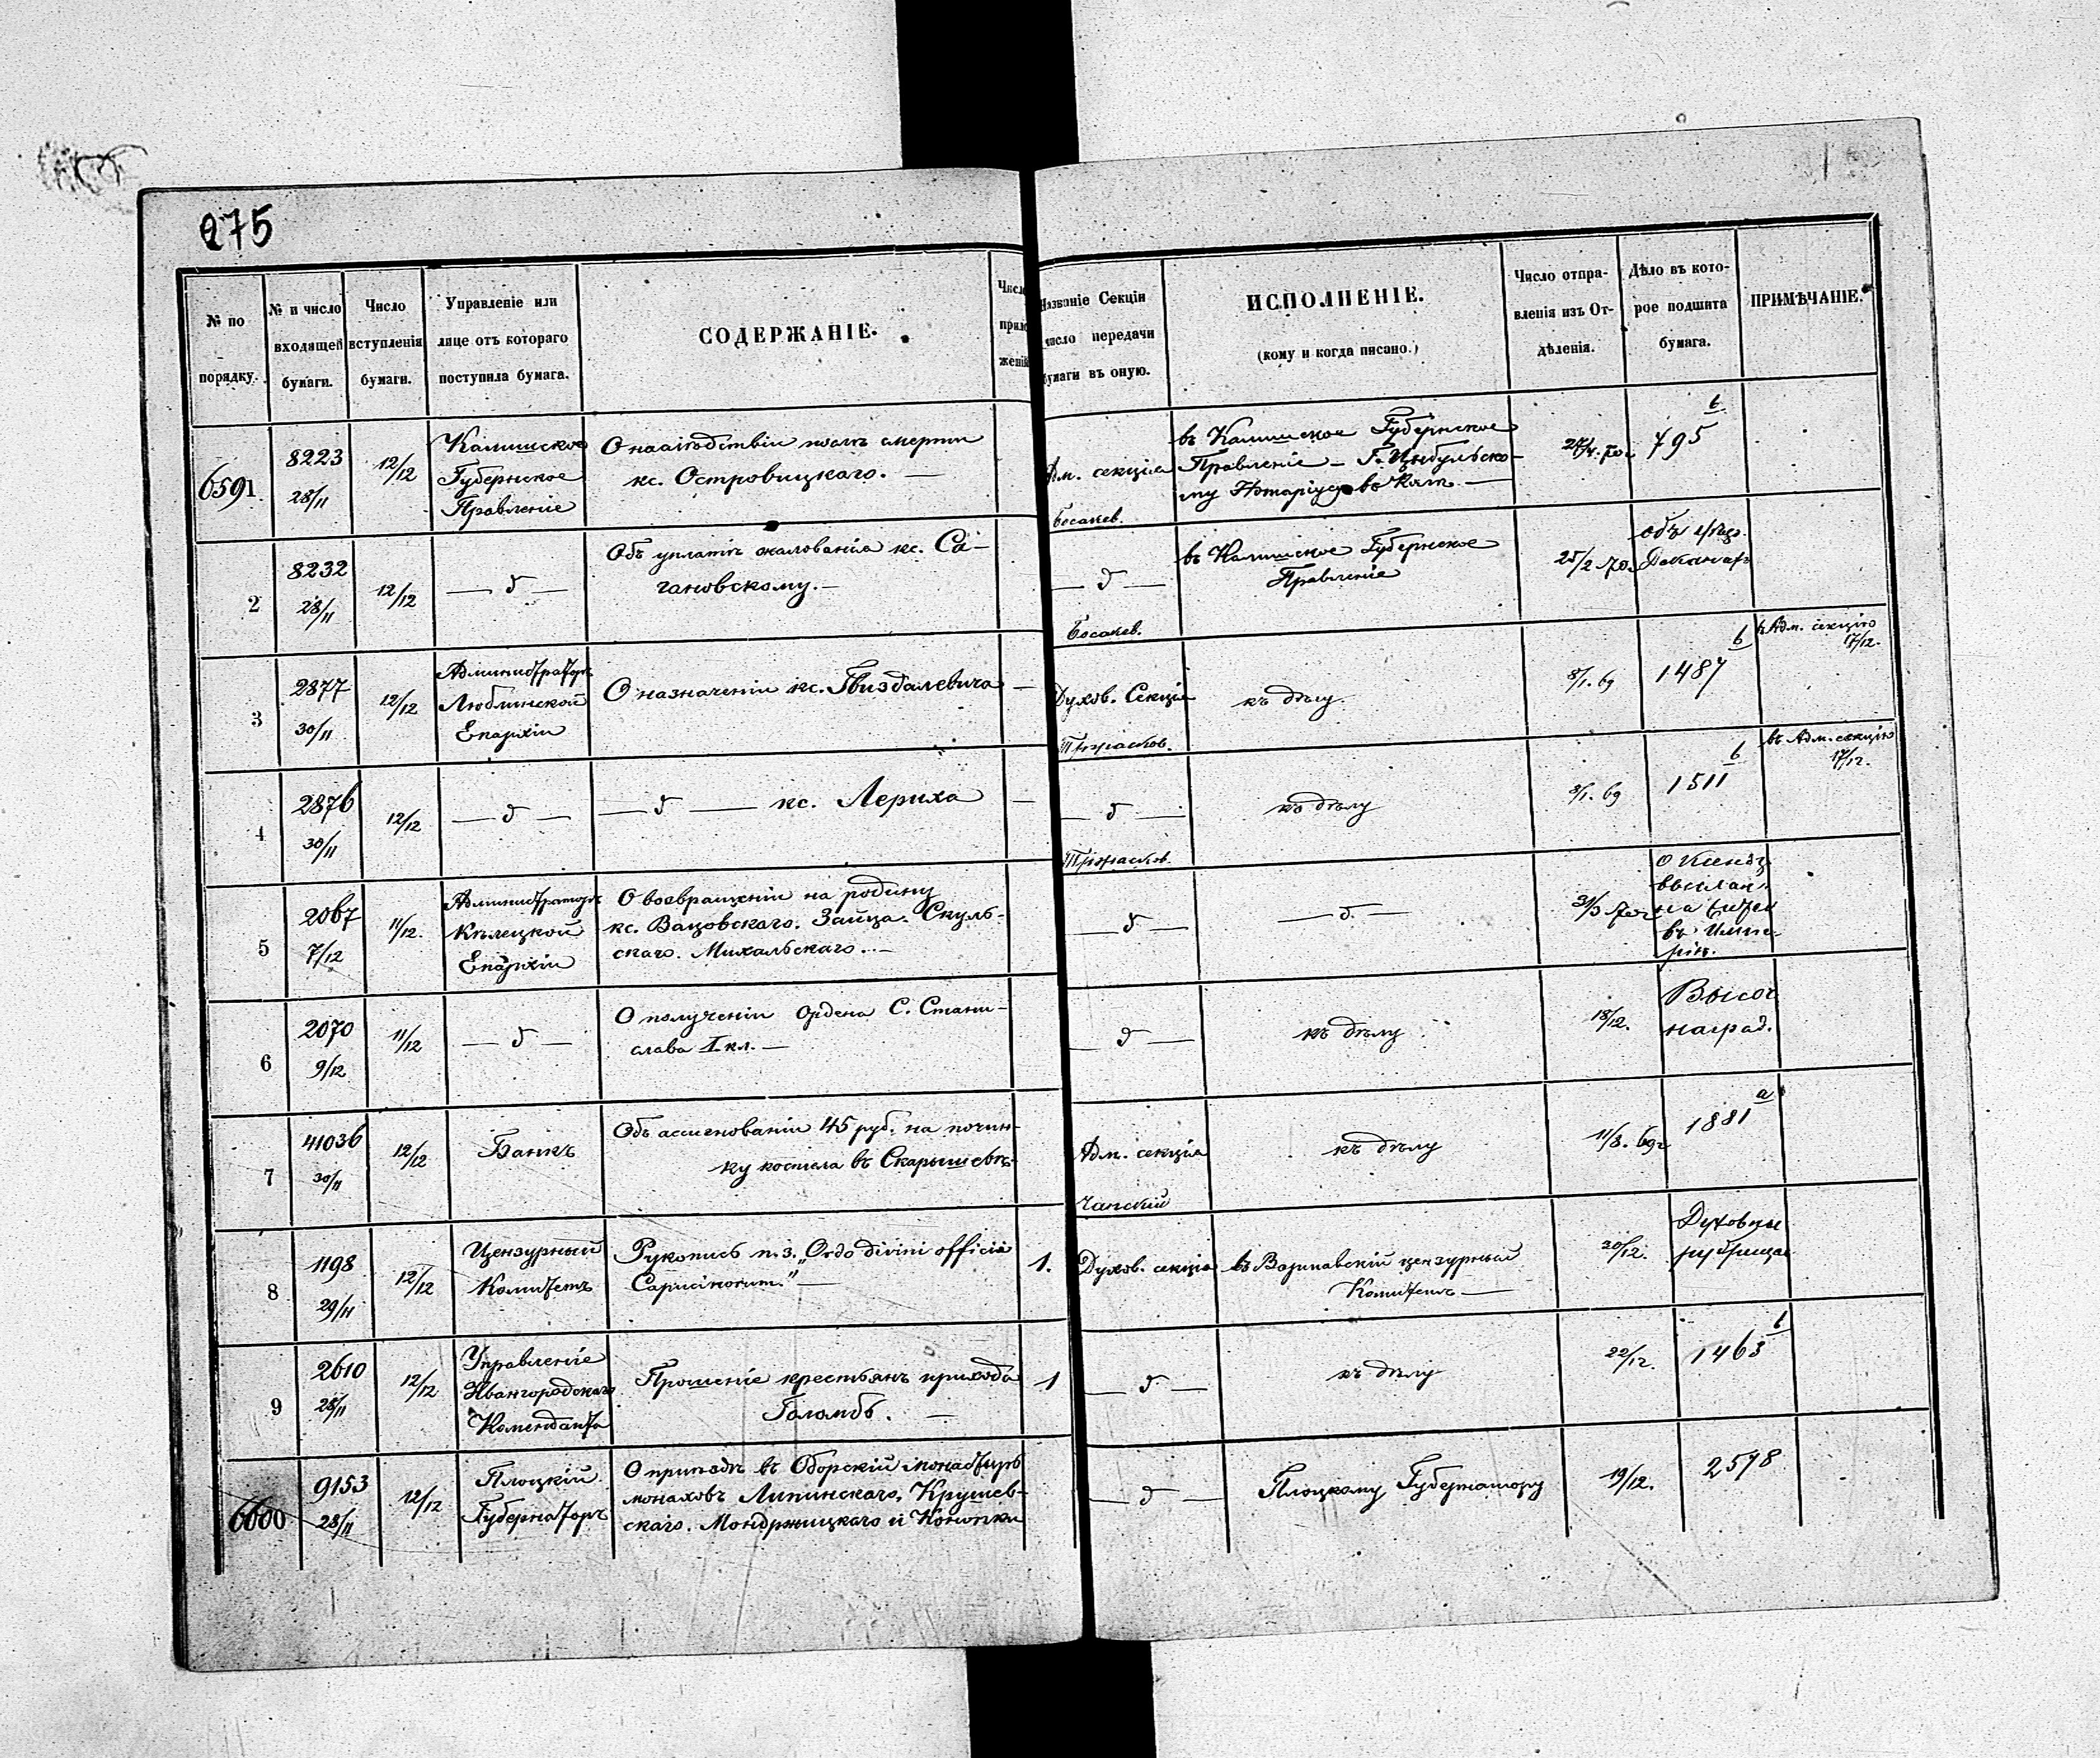 275
№ по порядку.
№ и число входящей бумаги.
Число вступленія бумаги.
Управленіе или лице отъ котораго поступила бумага.
СОДЕРЖАНІЕ.
Число прило- женій
Названіе Секціи число передачи бумаги въ оную.
ИСПОЛНЕНІЕ.
(кому и когда писано.)
Число отпра- вленія изъ От- дѣленія.
Дѣло въ кото- рое подшита бумага.
ПРИМѢЧАНІЕ.
6591
8223
28/11
12/12
Калишское
Губернское
Правленіе
О наслѣдствіи послѣ смерти
кс. Островицкаго. —
Ад. секція
Босакев.
въ Калишское Губернское
Правленіе – Г. Цыбульско-
му Нотаріусу въ Кал. —
795
б
2
8232
28/11
12/12
— д —
Объ уплатѣ жалованія кс. Са-
гановскому. —
— д —
Босакев.
въ Калишское Губернское
Правленіе
25/2 70.
объ
3
2877
30/11
12/12
Администраторъ
Люблинской
Епархіи
О назначеніи кс. Гвиздалевича —
Духов. Секція
къ дѣлу.
8/1. 69
1487
б
въ Адм. секцію
17/12.
4
2876
30/11
12/12
— д —
— д — кс. Лериха —
— д —
къ дѣлу
8/1. 69
1511
б
въ Адм. секцію
17/12.
5
2067
7/12
11/12.
Администраторъ
Кѣлецкой
Епархіи
О возвращеніи на родину
кс. Вацовскаго. Зайца. Скуль-
скаго. Михальскаго. —
— д —
— д. —
31/3 70 г
о ксендз.
выслан.
на
въ Импе-
ріи.
6
2070
9/12
11/12
— д —
О полученіи Ордена С. Стани-
слава I кл. —
— д —
къ дѣлу
18/12.
Высоч
наград.
7
41036
30/11
12/12
Банкъ
Объ ассигнованіи 45 руб. на почин-
ку костела въ Скарышевѣ.
Адм. секція
Чапскій
къ дѣлу
11/8. 69 г
1881
а
8
1198
29/11
12/12
Цензурный
Комитетъ
Рукопись п. з. „Ordo divini officii
Capucinorum." —
1.
Духов. секція
въ Варшавскій цензурный
Комитетъ —
20/12.
Духовны
рубрица
9
2610
28/11
12/12
Управленіе
Ивангородскаго
Коменданта
Прошеніе крестьянъ прихода
Голомбъ. —
1
— д —
къ дѣлу
22/12.
1463
б
6600
9153
28/11
12/12
Плоцкій
Губернаторъ
О пріѣздѣ въ Оборскій монастырь
монаховъ Липинскаго, Крушев-
скаго. Мондржицкаго и Конопки
— д —
Плоцкому Губернатору
19/12.
2578